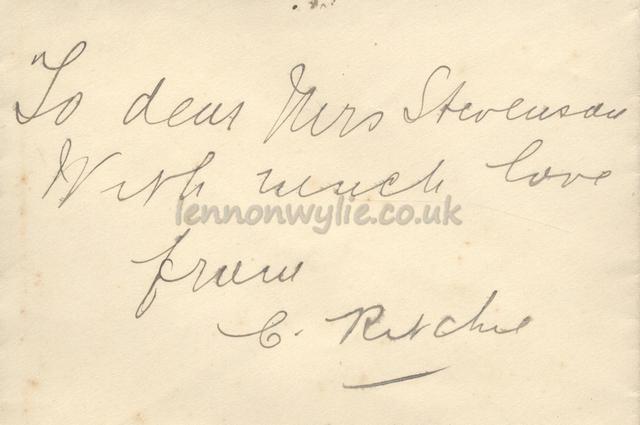 "To dear Mrs Stevenson
With much love
lennonwylie.co.uk
from
C. Ritchie